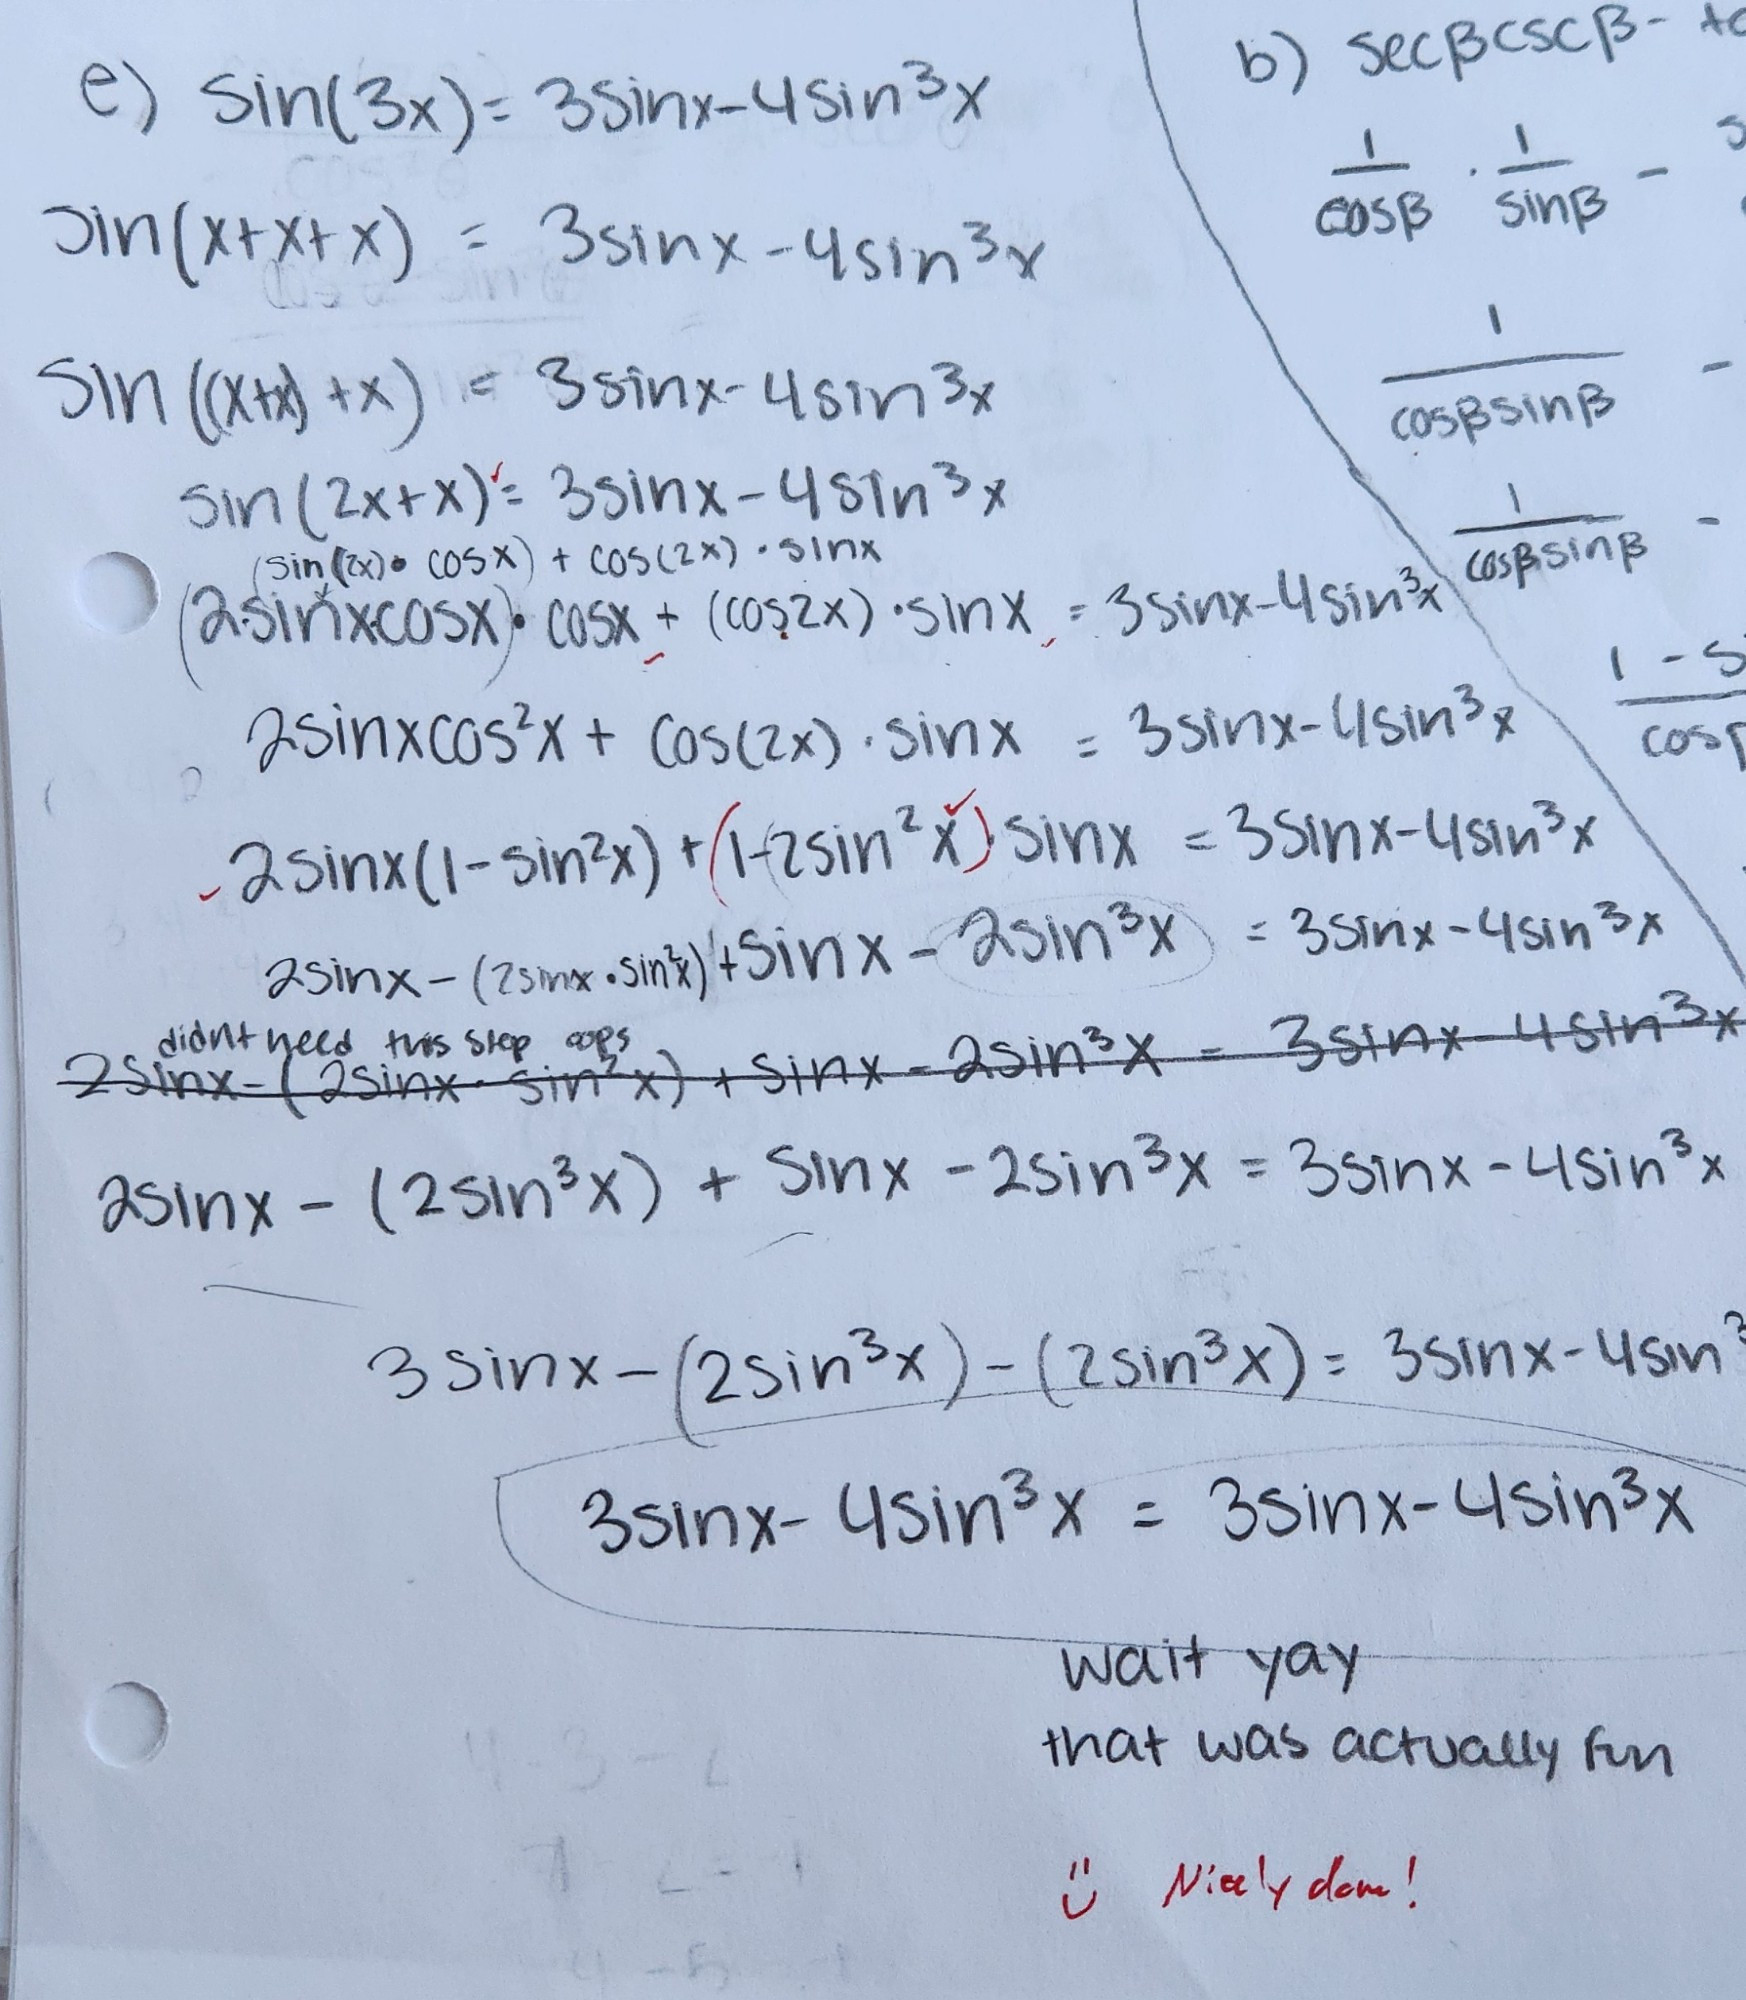 e) sin(3x) = 3sinx-4sin³x
sin(x+x+x) = 3sinx-4sin³x
sin((x+x)+x) = 3sinx-4sin³x
sin(2x+x) = 3sinx-4sin³x
(sin(2x)• cosx) + cos(2x) · sinx
(2sinxcosx)• cosx + (cos2x) ·sinx = 3sinx-4sin³x
2sinxcos²x + cos(2x) · sinx = 3sinx-4sin³x
2sinx(1-sin²x) + (1-2sin²x)·sinx = 3sinx-4sin³x
2sinx-(2sinx•sin²x)+sinx-2sin³x = 3sinx-4sin³x
didnt need this step oops
2sinx-(2sinx·sin²x)+sinx-2sin³x = 3sinx-4sin³x
2sinx-(2sin³x) + sinx-2sin³x = 3sinx-4sin³x
3sinx-(2sin³x)-(2sin³x) = 3sinx-4sin³
3sinx-4sin³x = 3sinx-4sin³x
wait yay
that was actually fun
Nicely done!
b) secβcscβ-
1/cosβ · 1/sinβ -
1/cosβsinβ -
1/cosβsinβ -
1-s
cosβ